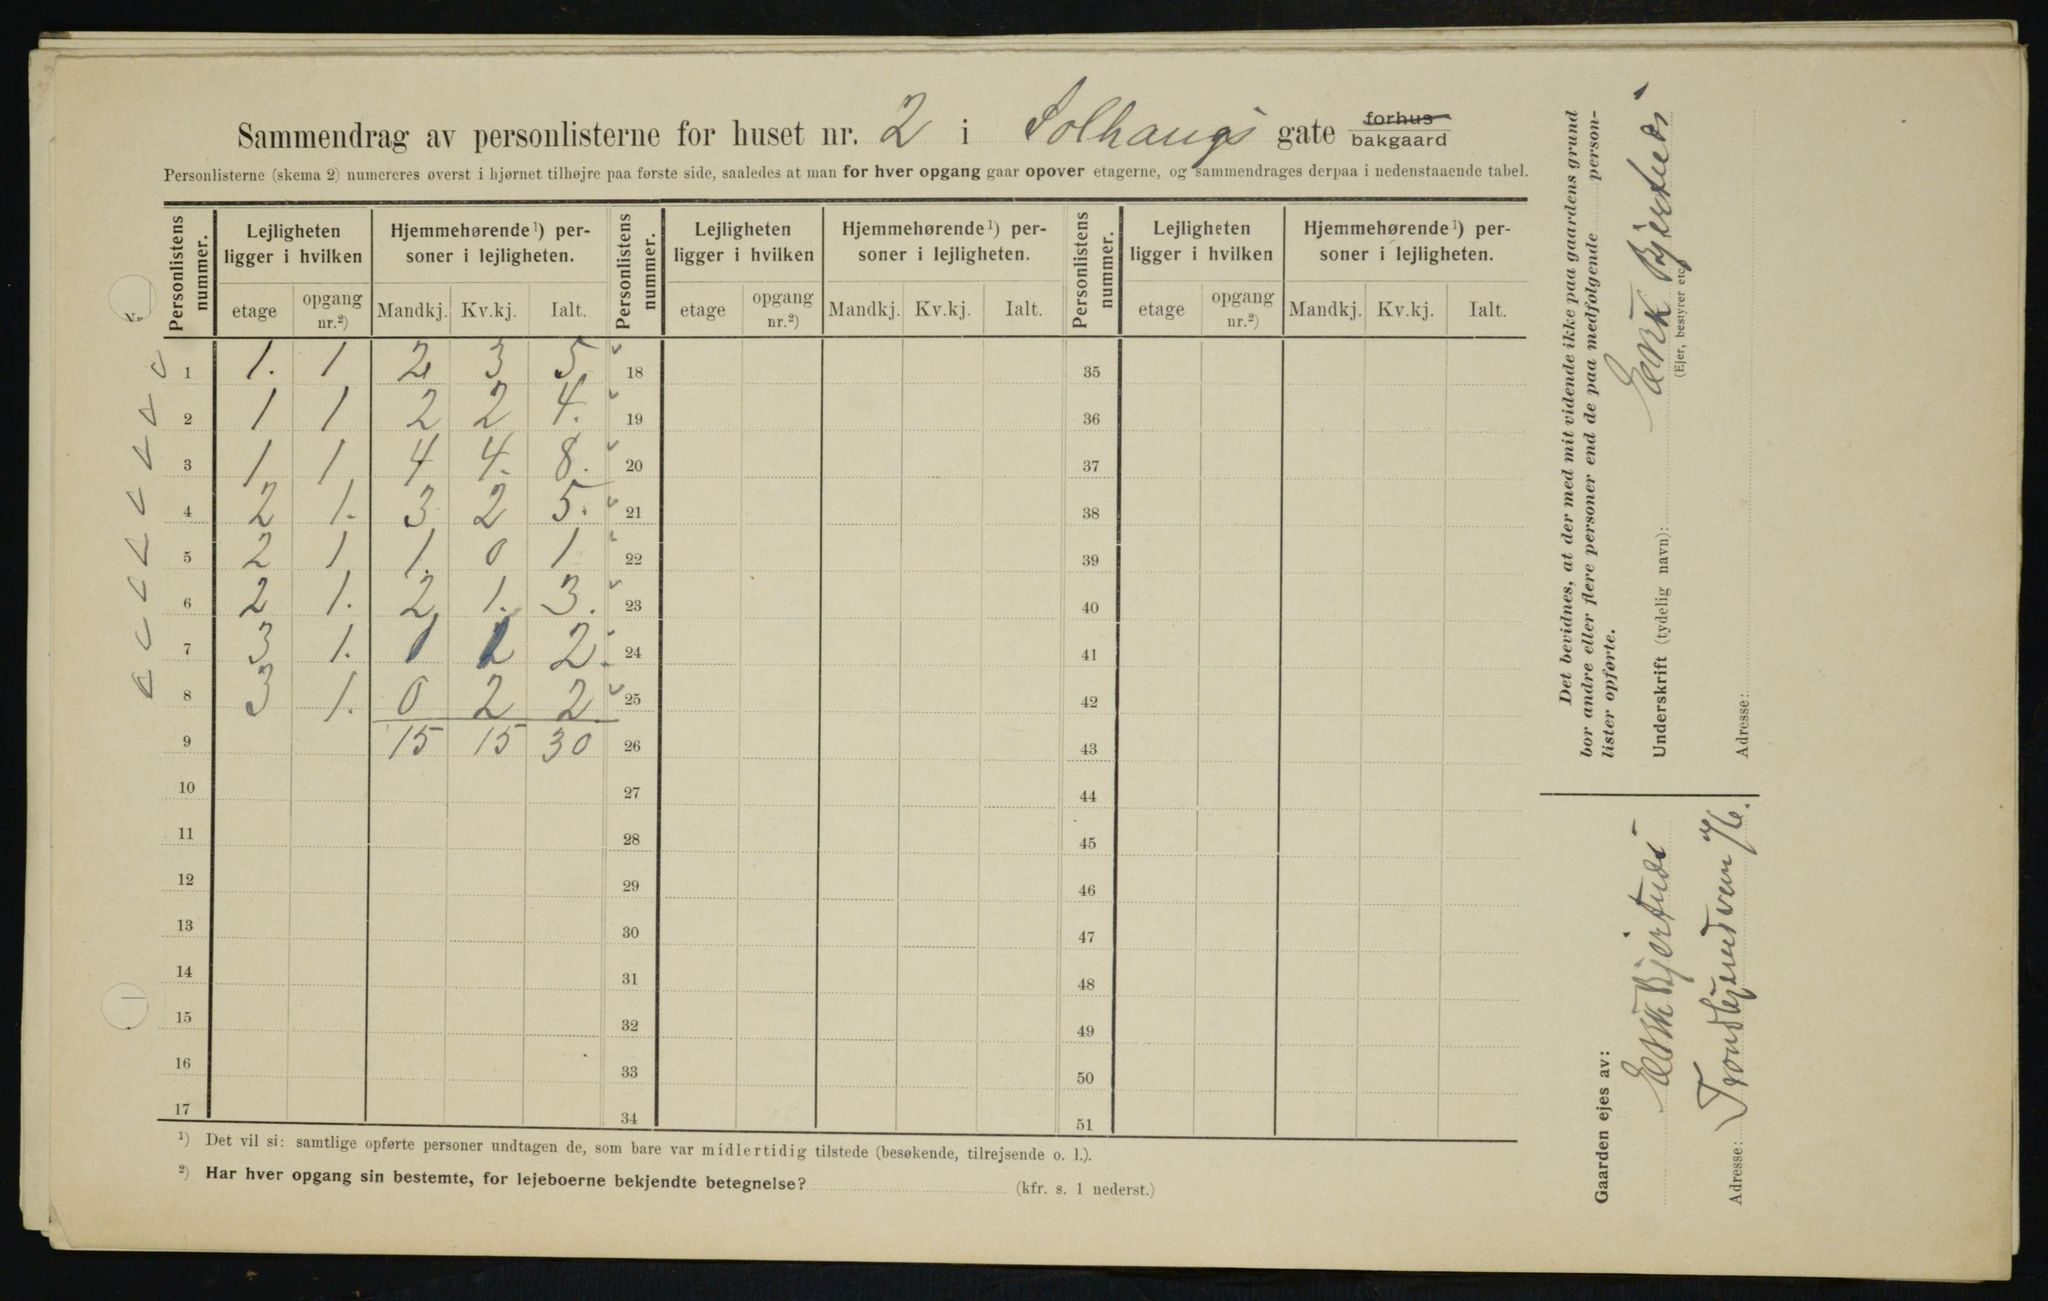 Sammendrag av personlisterne for huset nr. 2 i Solhaugs gate forhus bakgaard
Personlisterne (skema 2) numereres øverst i hjørnet tilhøjre paa første side, saaledes at man for hver opgang gaar opover etagerne, og sammendrages derpaa i nedenstaaende tabel.
Personlistens nummer. Lejligheten ligger i hvilken Hjemmehørende ¹) personer i lejligheten. Personlistens nummer. Lejligheten ligger i hvilken Hjemmehørende ¹) personer i lejligheten. Personlistens nummer. Lejligheten ligger i hvilken Hjemmehørende ¹) personer i lejligheten.
etage opgang nr.²) Mandkj. Kv.kj. Ialt. etage opgang nr.²) Mandkj. Kv.kj. Ialt. etage opgang nr.²) Mandkj. Kv.kj. Ialt.
1 1. 1 2 3 5. 18 35
2 1 1 2 2 4. 19 36
3 1 1 4 4. 8. 20 37
4 2 1. 3 2 5. 21 38
5 2 1 1 0 1 22 39
6 2 1. 2 1. 3. 23 40
7 3 1. 1 1 2. 24 41
8 3 1. 0 2 2. 25 42
9 15 15 30 26 43
10 27 44
11 28 45
12 29 46
13 30 47
14 31 48
15 32 49
16 33 50
17 34 51
¹) Det vil si: samtlige opførte personer undtagen de, som bare var midlertidig tilstede (besøkende, tilrejsende o. l.).
²) Har hver opgang sin bestemte, for lejeboerne bekjendte betegnelse? (kfr. s. 1 nederst.)
Det bevidnes, at der med mit vidende ikke paa gaardens grund
bor andre eller flere personer end de paa medfølgende personlister opførte.
Underskrift (tydelig navn):
(Ejer, bestyrer etc.)
Adresse:
Gaarden ejes av:
Adresse: Trondhjemsveien